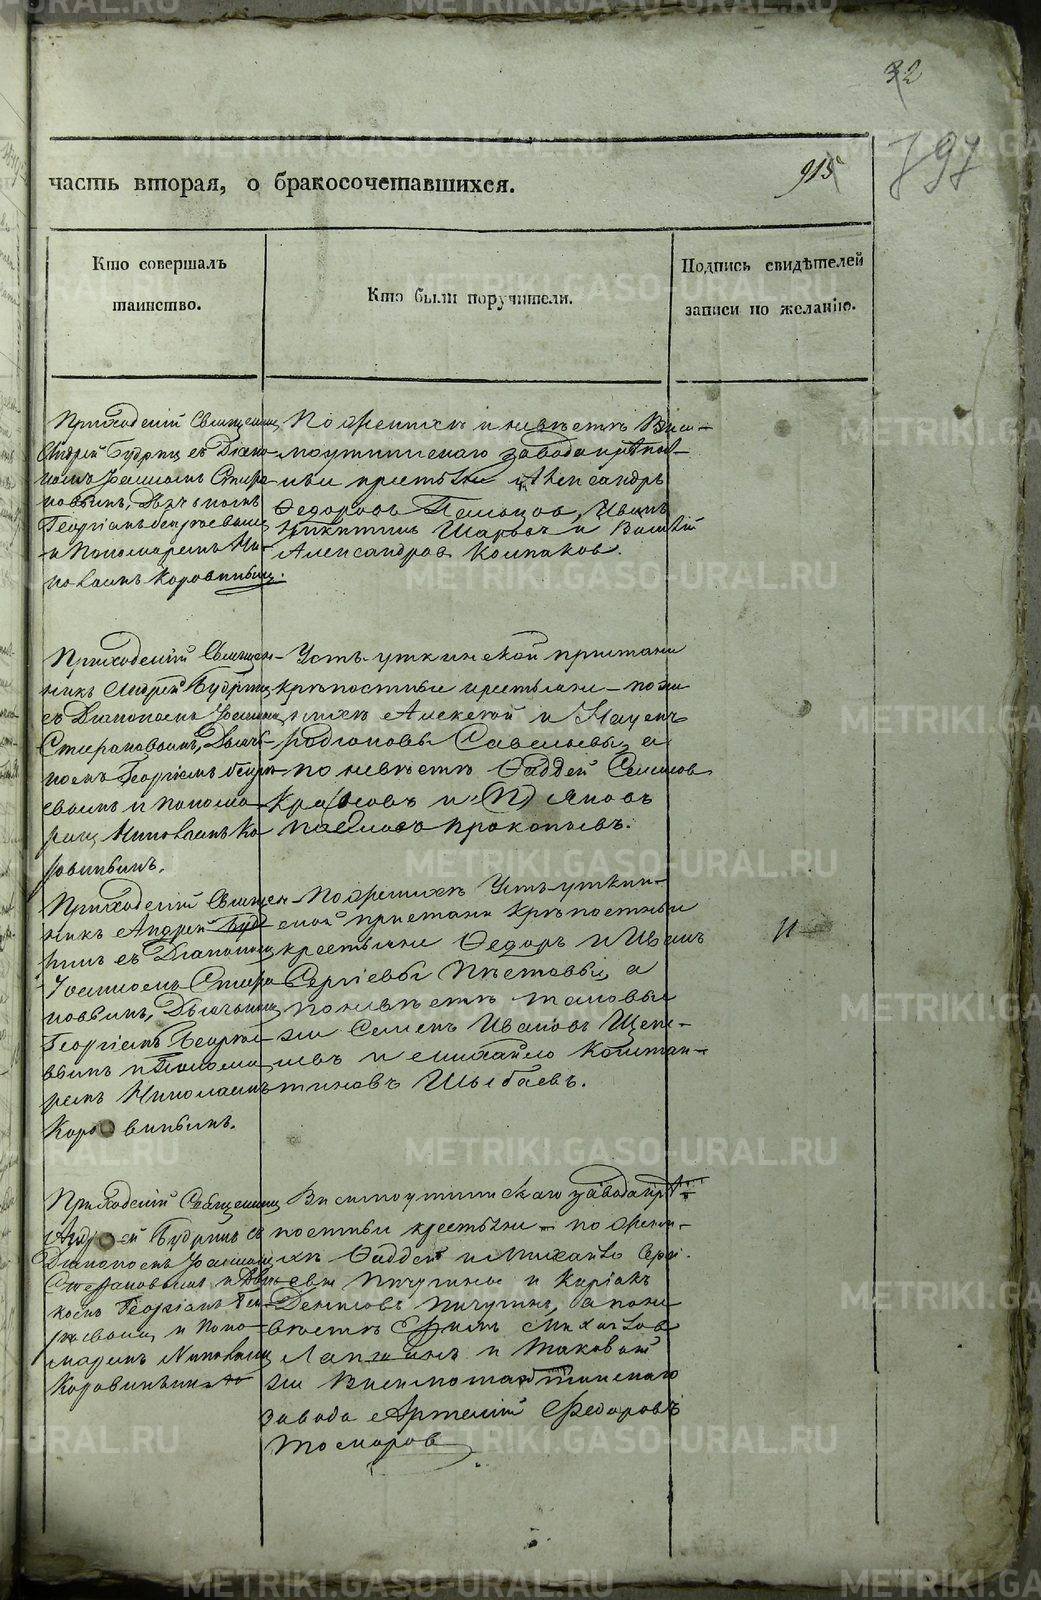 32
797
часть вторая, о бракосочетавшихся.
915
Кто совершалъ
таинство.
Кто были поручители.
Подпись свидѣтелей
записи по желанію.
Приходскій Священникъ
Андрей Будринъ съ Діако-
номъ Іоанномъ Стефа-
новымъ, Дьячкомъ
Георгіемъ
и Пономаремъ Ни-
колаемъ Коровинымъ.
По женихѣ и невѣстѣ Виси-
моуткинскаго завода крѣпост-
ныи крестьяне Александръ
Федоровъ Иванъ
Никитинъ и Василій
Александровъ Колпаковъ.
Приходскій Священ-
никъ Андрей Будринъ
съ Діакономъ Іоанномъ
Стефановымъ, Дьяч-
комъ Георгіемъ
и понома-
ремъ Николаемъ Ко-
ровинымъ.
Усть-уткинской пристани
крѣпостные крестьяне - по же-
нихѣ Алексей и Наумъ
Родіоновы Савельевы, а
по невѣстѣ Фаддей Семенов
и Яковъ
Павловъ Прокопьевъ.
Приходскій Священ-
никъ Андрей Буд-
ринъ съ Діакономъ
Іоанномъ Стефа-
новымъ, Дьячкомъ
Георгіемъ
и Понома-
ремъ Николаемъ
Коровинымъ.
По женихѣ Усть-уткин-
ской пристани крѣпостныи
крестьяне Федоръ и Иванъ
Сергіевы а
по невѣстѣ таковые
же Семенъ Ивановъ Щепе-
левъ и Михайло Констан-
тиновъ Шыбаевъ.
Приходскій Священникъ
Андрей Будринъ съ
Діакономъ Іоанномъ
Стефановымъ и Дьяч-
комъ Георгіемъ
и Поно-
маремъ Николаемъ
Коровинымъ
Висимоуткинскаго завода крѣ-
постныи крестьяне - по жени-
хѣ Фаддей и Михайло Серге-
евы Пичугины и Киріакъ
Денисовъ Пичугинъ, а по не-
вѣстѣ Михайлов
и таковой
же Висимоуткинскаго
завода Артемій Федоровъ